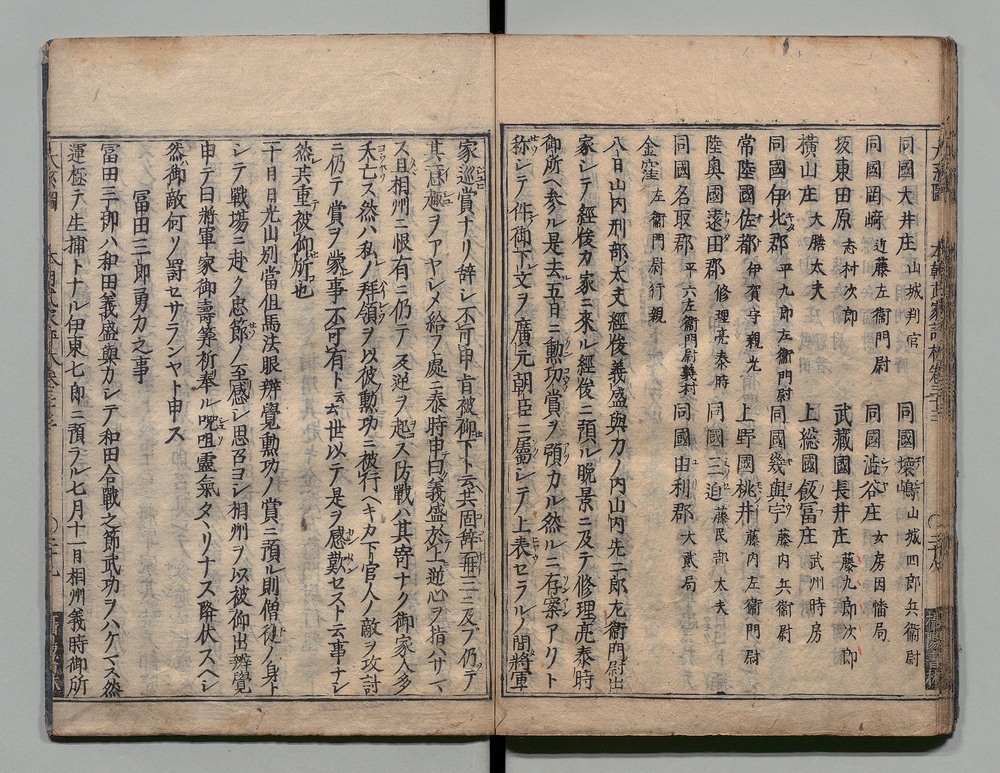 同國大井庄 山城判官 同國壞嶋 山城四郎兵衞尉
同國岡﨑 近藤左衞門尉 同國澁谷庄 女房因幡局
坂東田原 志村次郎 武藏國長井庄 藤九郎次郎
橫山庄 大膳大夫 上緫國飯冨庄 武州時房
同國伊北郡 平九郎左衞門尉 同國幾與宇 藤内兵衞尉
常陸國佐都 伊賀守親光 上野國桃井 藤内左衞門尉
陸奥國遠田郡 修理亮泰時 同國三迫 藤民部大夫
同國名取郡 平六左衞門尉義村 同國由利郡 大貳局
金窪 左衞門尉行親
八日山内刑部大夫經俊義盛與力ノ内山内先二郎左衞門尉出
家シテ經俊カ家ニ來ル經俊ニ預ル晚景ニ及テ修理亮泰時
御所ヘ參ル是去五日ニ勲功賞ヲ頭カル然ルニ存案アリト
称シテ件御下文ヲ廣元朝臣ニ屬シテ上表セラルノ間將軍
家巡賞ナリ辞シ不可申旨被仰下ト云共固辞再三ニ及ブ仍テ
其意趣ヲアヤシメ給フ處ニ泰時申曰義盛於上逆心ヲ指ハサマ
ス且相州ニ恨有ニ仍テ反逆ヲ起ス防戰ハ其寄ナク御家人多
夭亡ス然ハ私ノ拜領ヲ以彼勲功ニ被行ヘキカ下官人ノ敵ヲ攻討
ニ仍テ賞ヲ蒙事不可有ト云云世以テ是ヲ感歎セスト云事ナシ
然共重テ被仰所也
十日日光山別當但馬法眼辨覺勲功ノ賞ニ預ル則僧徒ノ身ト
シテ戰場ニ赴ク忠節ノ至感シ思召ヨシ相州ヲ以被仰出辨覺
申テ曰將軍家御壽筭祈奉ル呪咀靈氣タヽリナス降伏スヘシ
然御敵何ソ罸セサランヤト申ス
冨田三郎勇力之事
冨田三郎ハ和田義盛與カシテ和田合戰之節武功ヲハケマス然
運極テ生捕トナル伊東七郎ニ預ラル七月十一日相州義時御所